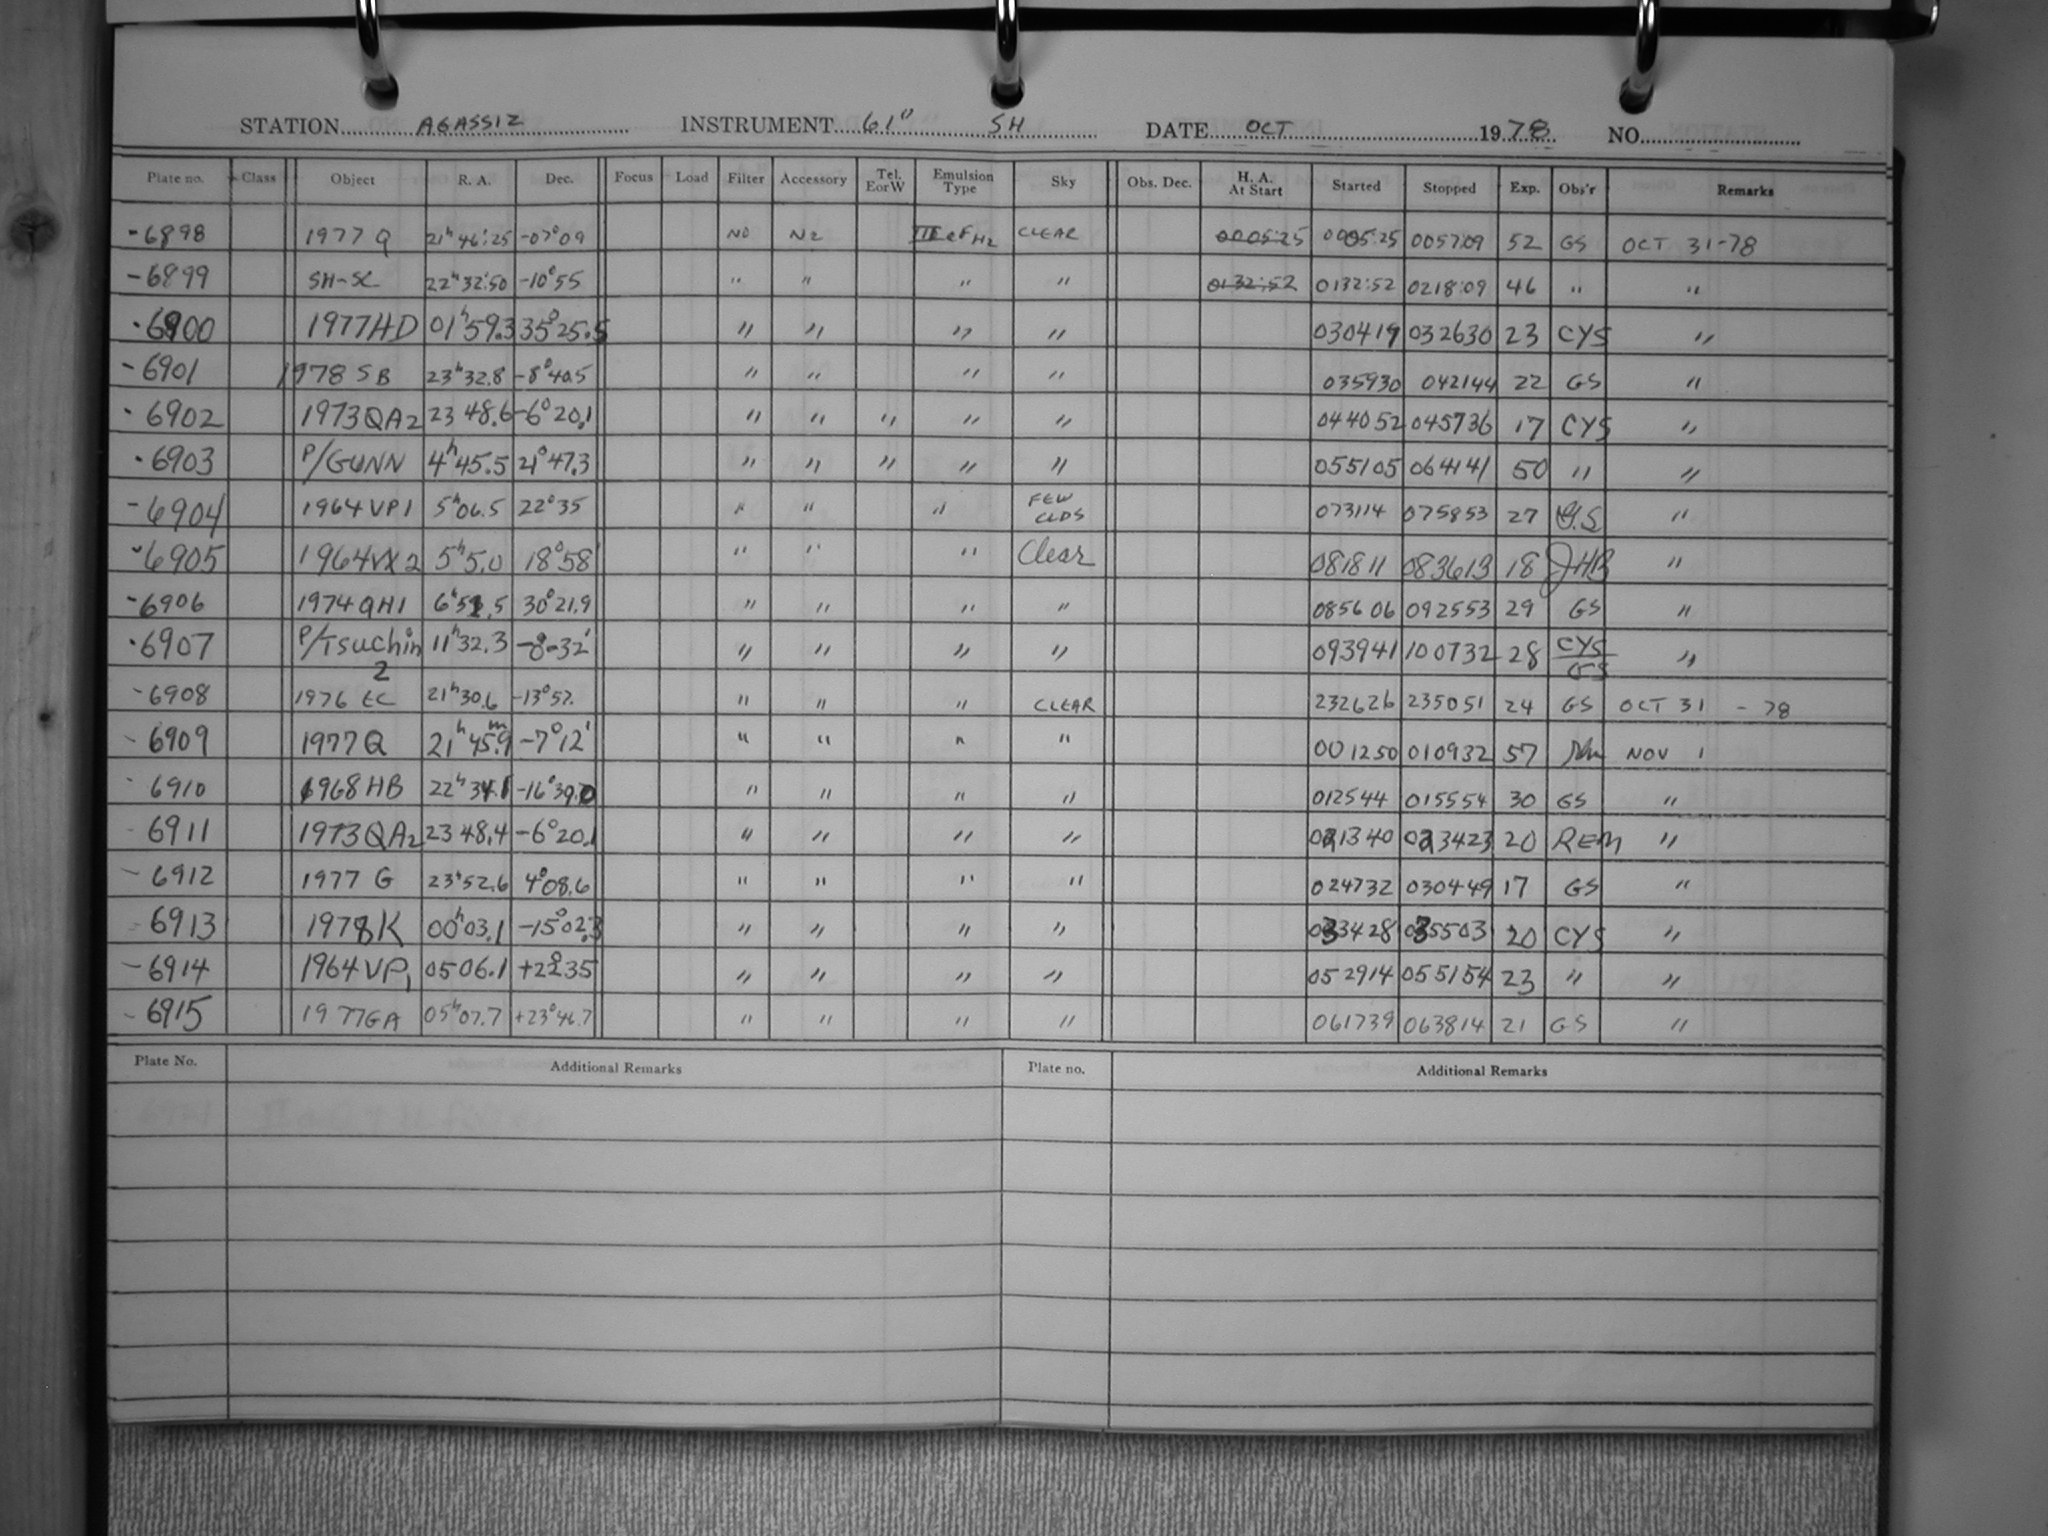 STATION AGASSIZ INSTRUMENT 61" SH DATE OCT 1978 NO.
Plate no. Class Object R. A. Dec. Focus Load Filter Accessory Tel. E or W Emulsion Type Sky Obs. Dec. H. A. At Start Started Stopped Exp. Obs'r Remarks
-6898 1977 Q 21h46:25 -07°09 NO N2 IIIaF H2 CLEAR 000525 000525 005709 52 GS OCT 31-78
-6899 SH-SC 22h32:50 -10°55 " " " " 0132:52 0132:52 0218:09 46 " "
-6900 1977HD 01h59.3 35°25.5 " " " " 030419 032630 23 CYS "
-6901 1978 SB 23h32.8 -8°40.5 " " " " 035930 042144 22 GS "
-6902 1973QA2 23 48.6 -6°20.1 " " " " " 044052 045736 17 CYS "
-6903 P/GUNN 4h45.5 21°47.3 " " " " " 055105 064141 50 " "
-6904 1964VP1 5h06.5 22°35 " " " FEW CLDS 073114 075853 27 G.S "
-6905 1964VX2 5h5.0 18°58' " " " Clear 081811 083613 18 JHB "
-6906 1974QH1 6h51.5 30°21.9 " " " " 085606 092553 29 GS "
-6907 P/Tsuchin 2 11h32.3 -8-32' " " " " 093941 100732 28 CYS/GS "
-6908 1976 EC 21h30.6 -13°52. " " " CLEAR 232626 235051 24 GS OCT 31 - 78
-6909 1977Q 21h45.m9 -7°12' " " " " 001250 010932 57 NOV 1
-6910 1968HB 22h34.1 -16°39.0 " " " " 012544 015554 30 GS "
-6911 1973QA2 23 48.4 -6°20.1 " " " " 021340 023423 20 REM "
-6912 1977 G 23h52.6 4°08.6 " " " " 024732 030449 17 GS "
-6913 1978K 00h03.1 -15°02.3 " " " " 033428 035503 20 CYS "
-6914 1964VP1 05 06.1 +22°35 " " " " 052914 055154 23 " "
-6915 1977GA 05h07.7 +23°46.7 " " " " 061739 063814 21 GS "
Plate No. Additional Remarks Plate no. Additional Remarks